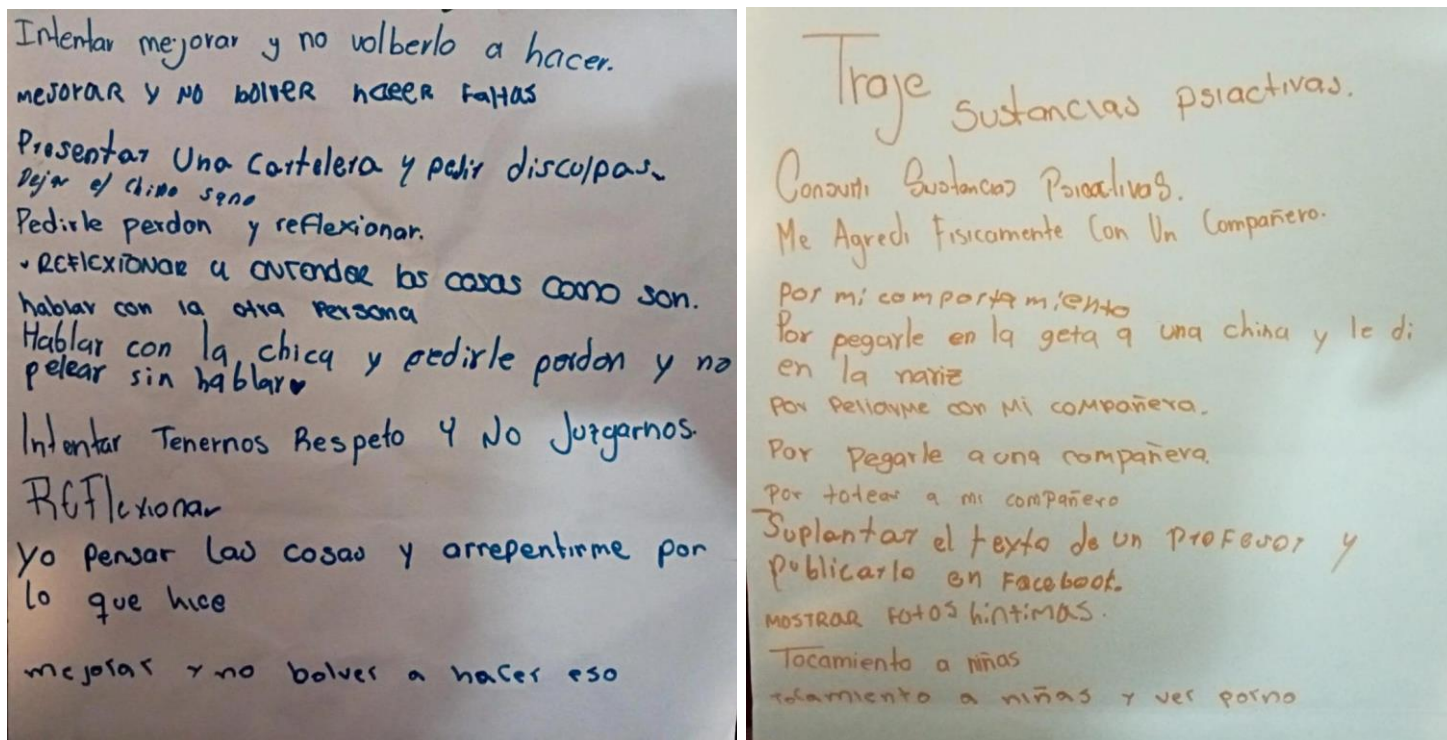 Intentar mejorar y no volberlo a hacer.
mejorar y no bolver hacer faltas
Presentar Una Cartelera y pedir disculpas.
Dejar el chino sano
Pedirle perdon y reflexionar.
• REFLEXIONAR a entender las cosas como son.
hablar con la otra persona
Hablar con la chica y pedirle perdon y no
pelear sin hablar♥
Intentar Tenernos Respeto Y No Juzgarnos.
REFlexionar
yo pensar las cosas y arrepentirme por
lo que hice
mejorar y no bolver a hacer eso
Traje sustancias psiactivas.
Consumi Sustancias Psicoactivas.
Me Agredi Fisicamente Con Un Compañero.
Por mi comportamiento
Por pegarle en la geta a una china y le di
en la nariz
Por Peliarme con Mi compañera.
Por pegarle a una compañera.
Por totear a mi compañero
Suplantar el texto de un Profesor y
publicarlo en Facebook.
MOSTRAR FOTOS hintimas.
Tocamiento a niñas
tocamiento a niñas y ver porno